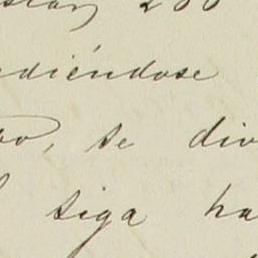 200
ndiéndose
po, se div
siga ha